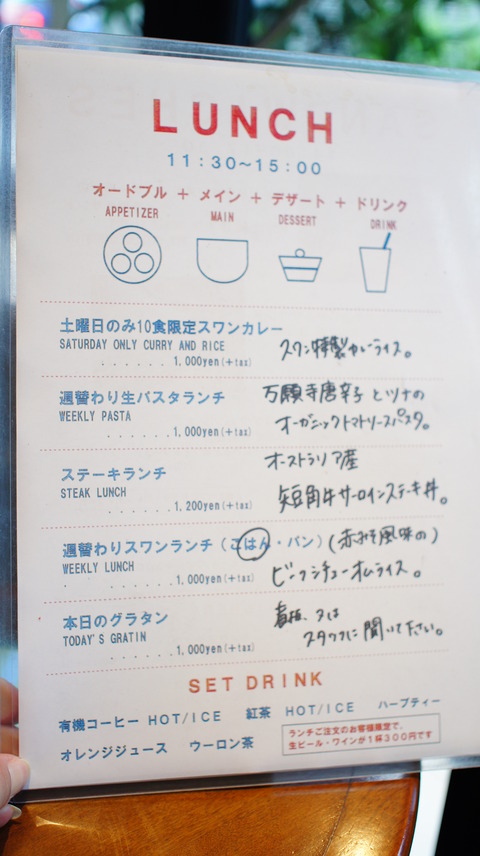 LUNCH
11:30~15:00
オードブル + メイン + デザート + ドリンク
APPETIZER MAIN DESSERT DRINK
土曜日のみ10食限定スワンカレー
SATURDAY ONLY CURRY AND RICE
スワン特製カレーライス。
......1,000yen(+tax)
週替わり生パスタランチ
万願寺唐辛子とツナの
WEEKLY PASTA
オーガニックトマトソースパスタ。
......1,000yen(+tax)
ステーキランチ
オーストラリア産
STEAK LUNCH
短角牛サーロインステーキ丼。
......1,200yen(+tax)
週替わりスワンランチ(ごはん・パン)(赤みそ風味の)
WEEKLY LUNCH
ビーフシチューオムライス。
......1,000yen(+tax)
本日のグラタン
TODAY'S GRATIN
スタッフに聞いて下さい。
......1,000yen(+tax)
SET DRINK
有機コーヒー HOT/ICE 紅茶 HOT/ICE ハーブティー
オレンジジュース ウーロン茶
ランチご注文のお客様限定で、
生ビール・ワインが1杯300円です